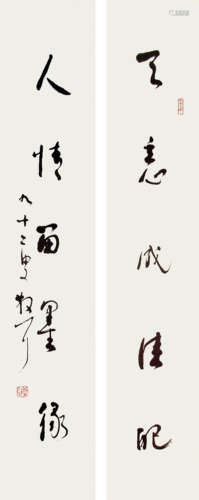 天意成佳配
人情留墨缘
九十二叟牧